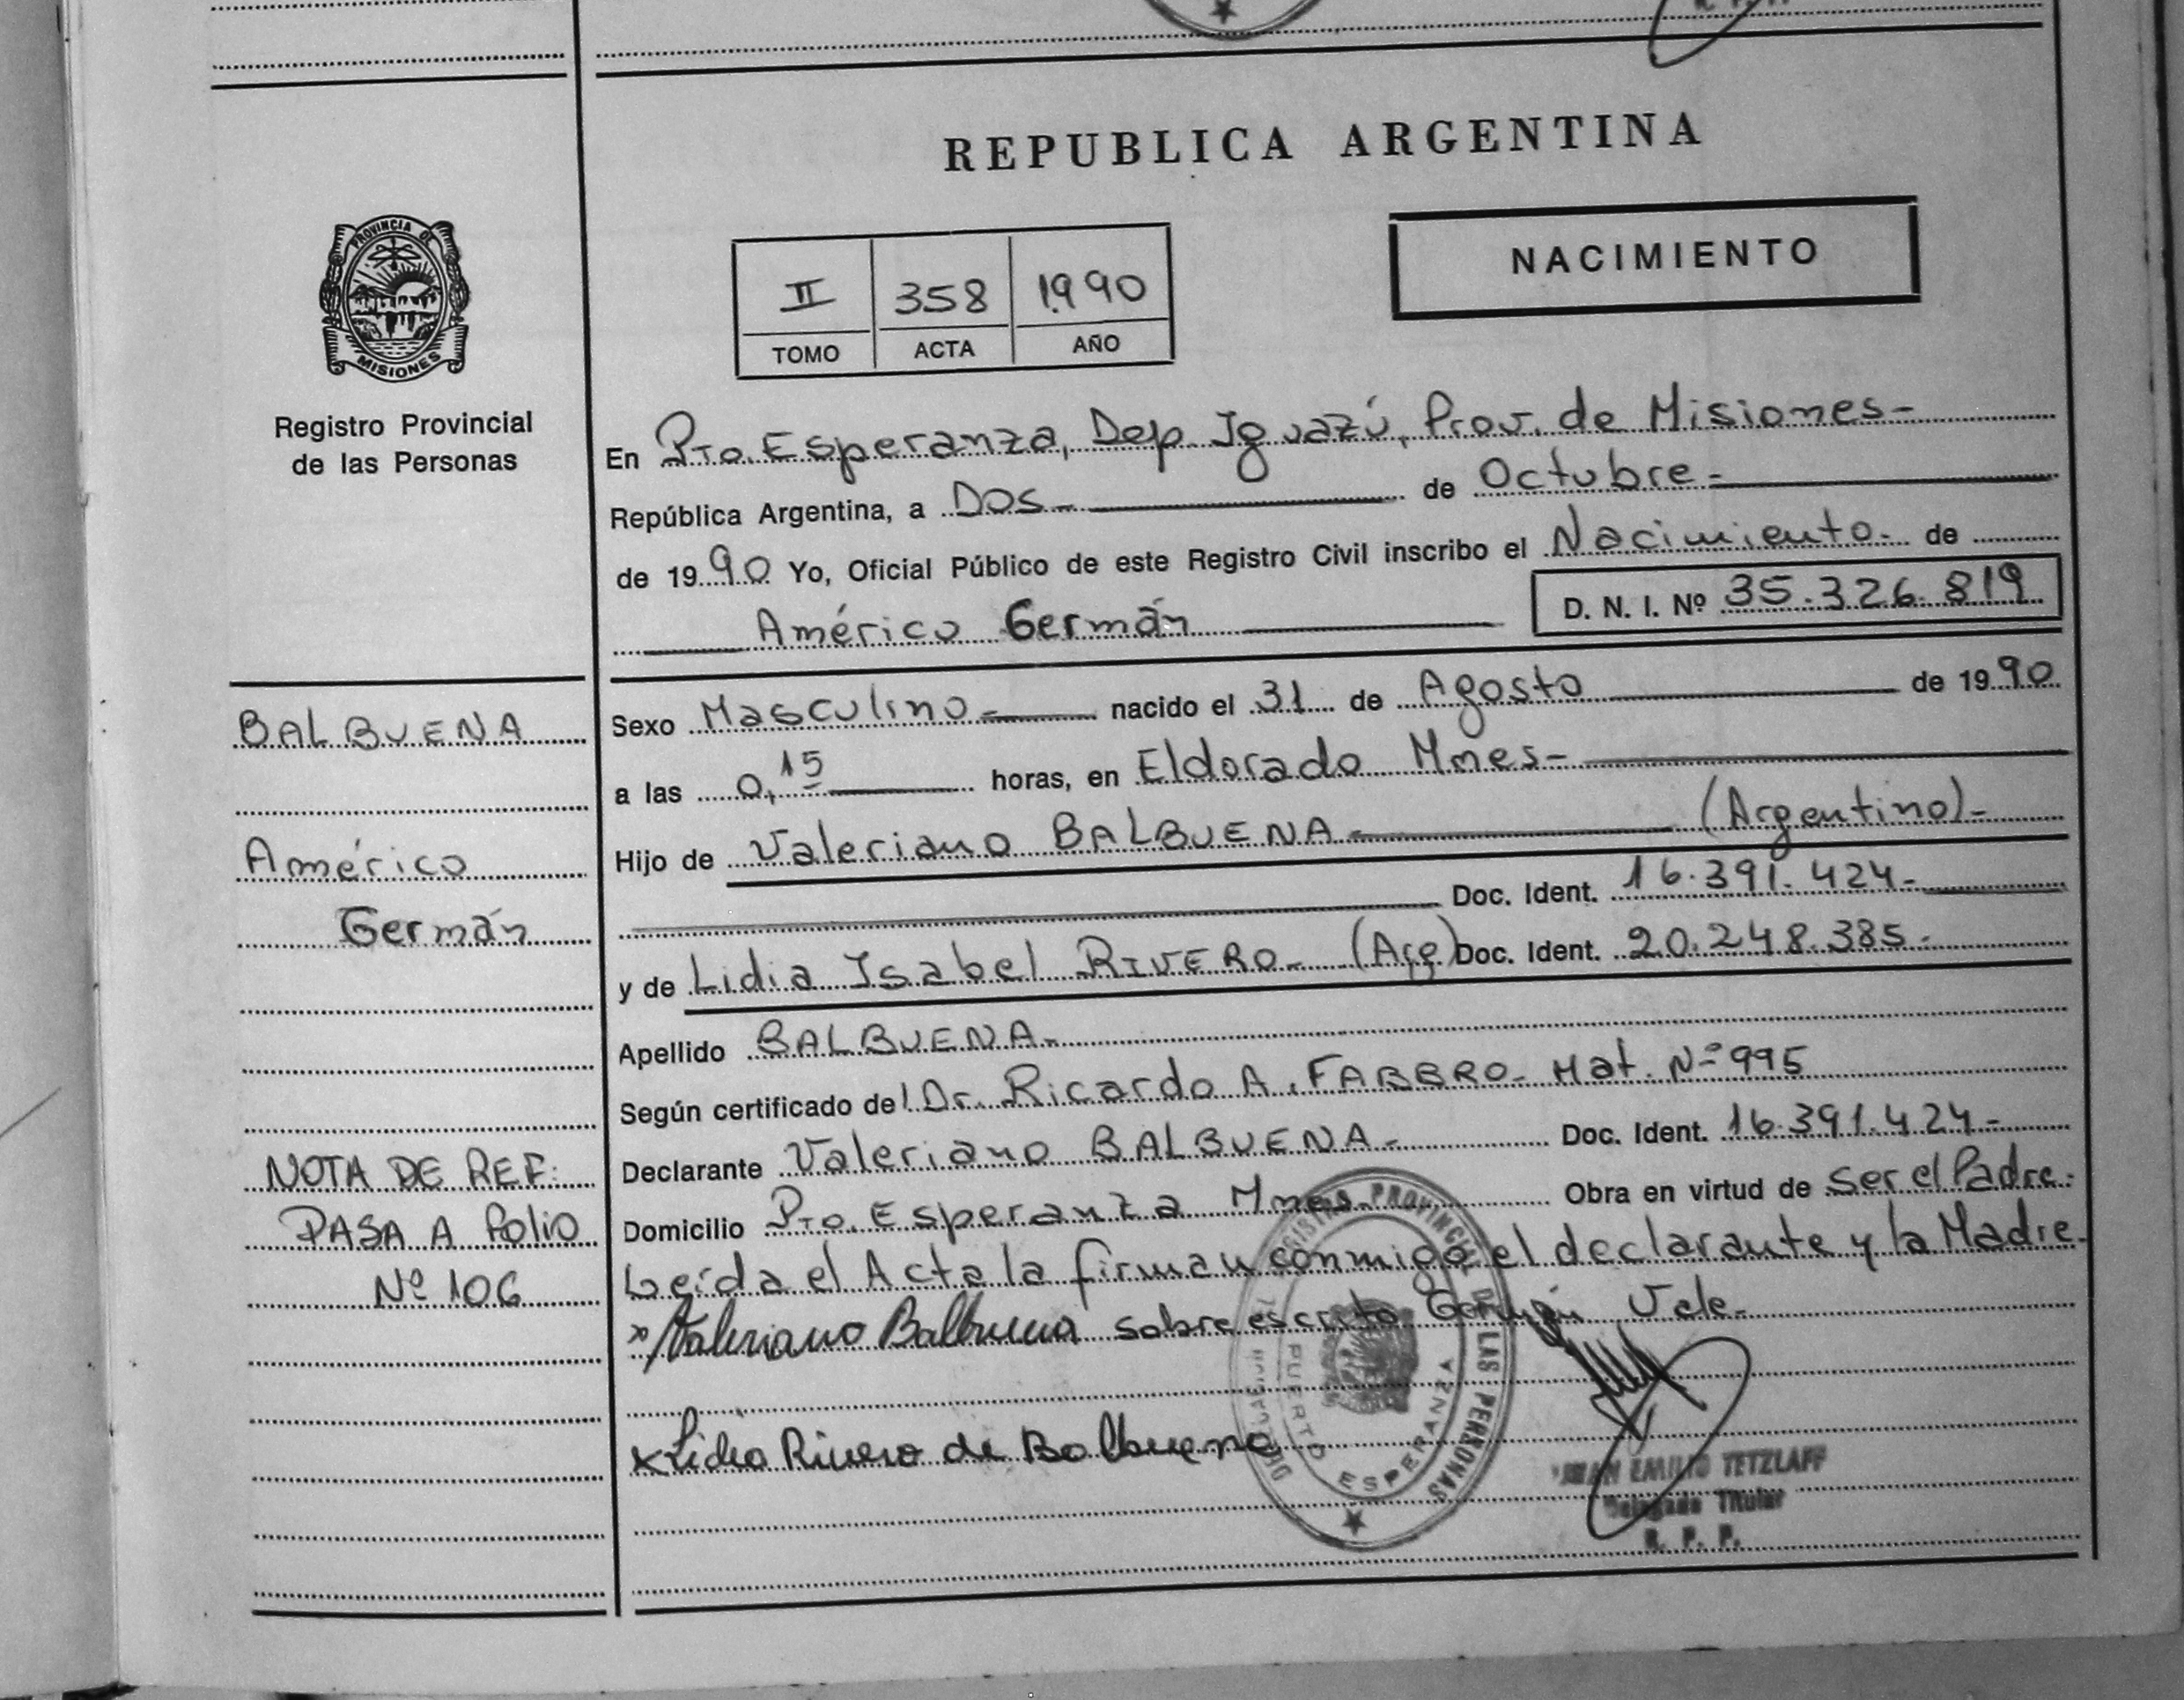 REPUBLICA ARGENTINA
NACIMIENTO
II 358 1.990
TOMO ACTA AÑO
PROVINCIA DE
MISIONES
Registro Provincial
de las Personas
En Pto. Esperanza, Dep. Iguazú, Prov. de Misiones-
República Argentina, a Dos- de Octubre-
de 19 90 Yo, Oficial Público de este Registro Civil inscribo el Nacimiento- de
Américo Germán D. N. I. Nº 35.326.819
BALBUENA
Américo
Germán
NOTA DE REF:
PASA A folio
Nº 106
Sexo Masculino- nacido el 31 de Agosto de 19 90
a las 0,15 horas, en Eldorado Mnes-
Hijo de Valeriano BALBUENA- (Argentino)-
Doc. Ident. 16.391.424-
y de Lidia Isabel RIVERO- (Arg) Doc. Ident. 20.248.385-
Apellido BALBUENA-
Según certificado del Dr. Ricardo A. FABBRO- Mat. Nº 995
Declarante Valeriano BALBUENA- Doc. Ident. 16.391.424-
Domicilio Pto. Esperanza Mnes- Obra en virtud de ser el Padre-
Leída el Acta la firman conmigo el declarante y la Madre-
x Valeriano Balbuena sobre escrito Germán Vale-
x Lidia Rivero de Balbuena
REGISTRO PROVINCIAL DE LAS PERSONAS
PUERTO ESPERANZA
JUAN EMILIO TETZLAFF
Delegado Titular
R. P. P.